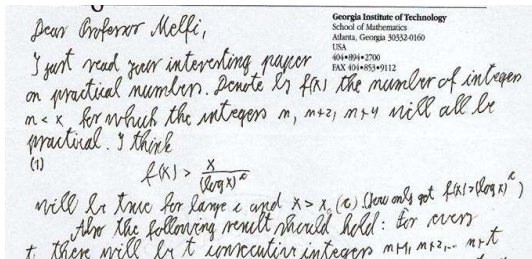 Georgia Institute of Technology
School of Mathematics
Atlanta, Georgia 30332-0160
USA
404•894•2700
FAX 404•853•9112
Dear Professor Melfi,
I just read your interesting paper
on practical numbers. Denote by f(x) the number of integers
n < x for which the integers n, n+2, n+4 will all be
practical. I think
(1) f(x) > x/(log x)^c
will be true for large c and x > x₀(c) (you only got f(x) > (log x)^c)
Also the following result should hold: for every
t there will be t consecutive integers m+1, m+2, ... m+t